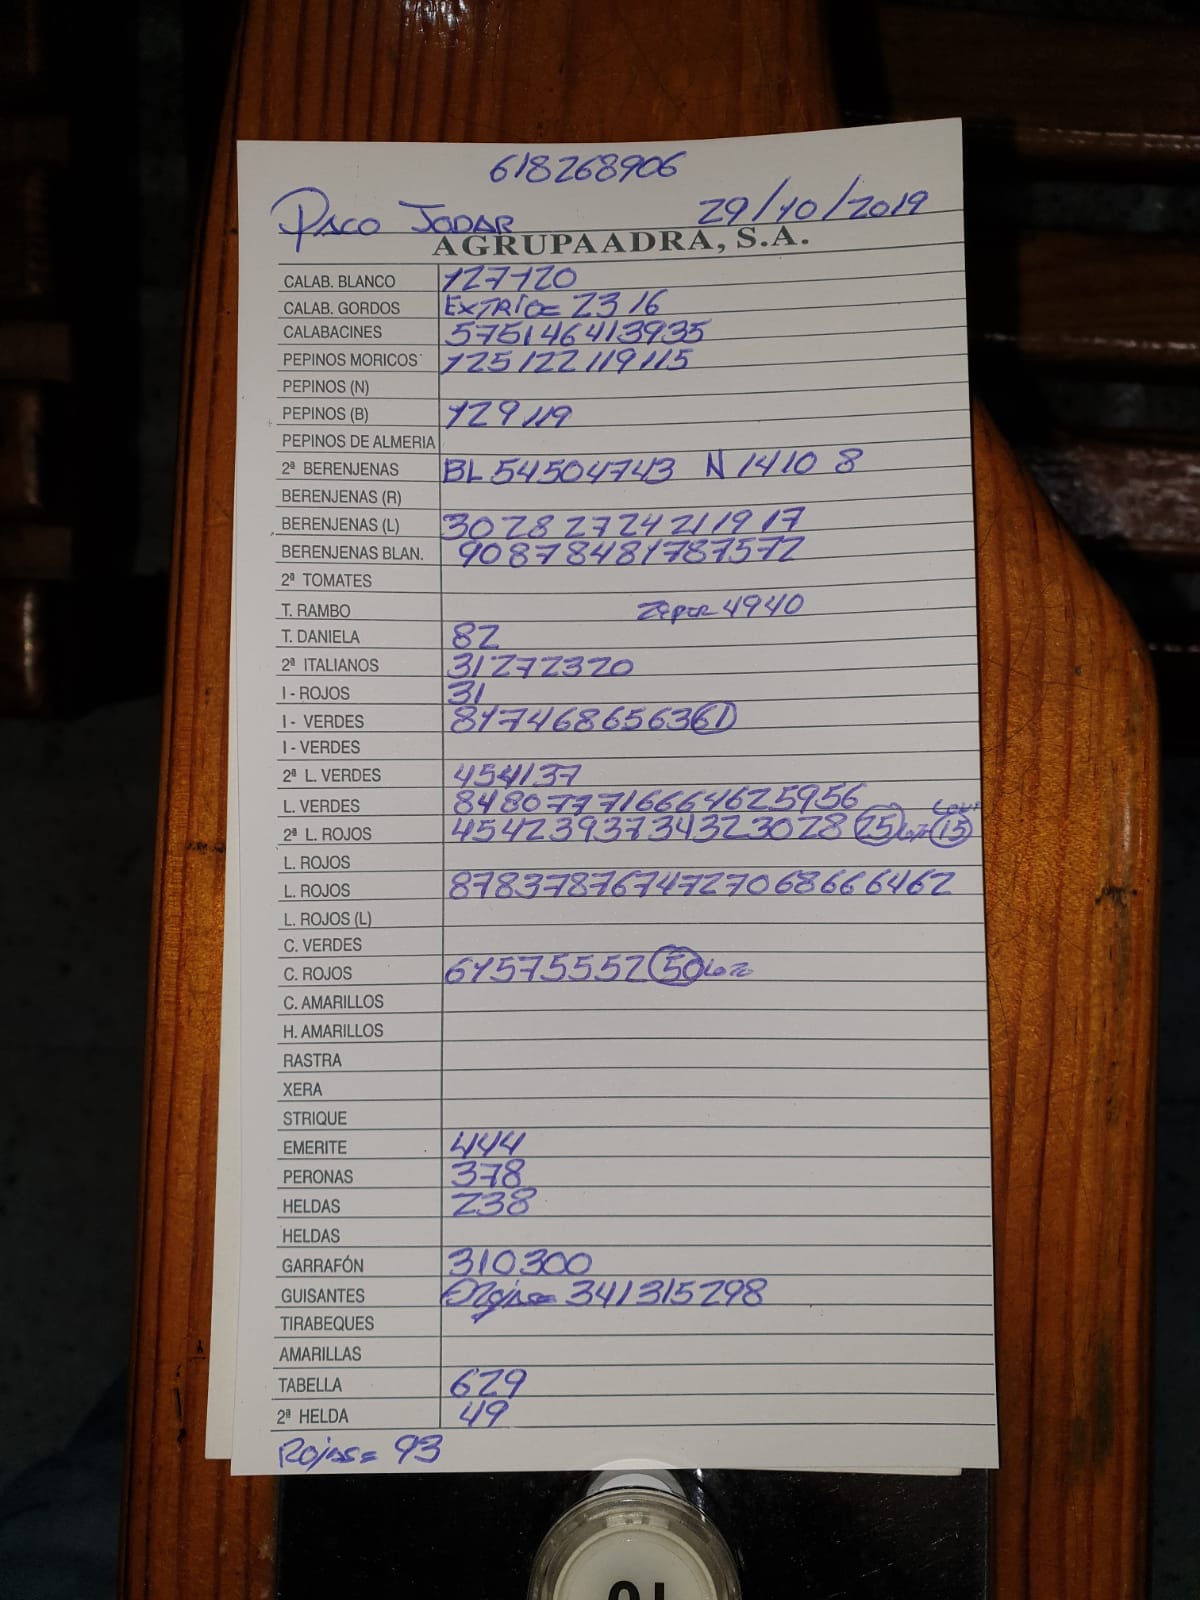 618268906
PACO JODAR 29/10/2019
AGRUPAADRA, S.A.
CALAB. BLANCO 127120
CALAB. GORDOS 23 16
CALABACINES 575146413935
PEPINOS MORICOS 125122119115
PEPINOS (N)
PEPINOS (B) 129119
PEPINOS DE ALMERIA
2ª BERENJENAS BL 54504743 N 1410 8
BERENJENAS (R)
BERENJENAS (L) 30 28 27 24 21 19 17
BERENJENAS BLAN. 90878481787572
2ª TOMATES
T. RAMBO 4940
T. DANIELA 82
2ª ITALIANOS 31272320
I - ROJOS 31
I - VERDES 817468656361
I - VERDES
2ª L. VERDES 454137
L. VERDES 848077716664625956
2ª L. ROJOS 4542393734323028 25 15
L. ROJOS
L. ROJOS 878378767472706866 6462
L. ROJOS (L)
C. VERDES
C. ROJOS 6157555250
C. AMARILLOS
H. AMARILLOS
RASTRA
XERA
STRIQUE
EMERITE 444
PERONAS 378
HELDAS 238
HELDAS
GARRAFÓN 310300
GUISANTES 341315298
TIRABEQUES
AMARILLAS
TABELLA 629
2ª HELDA 49
Rojas= 93